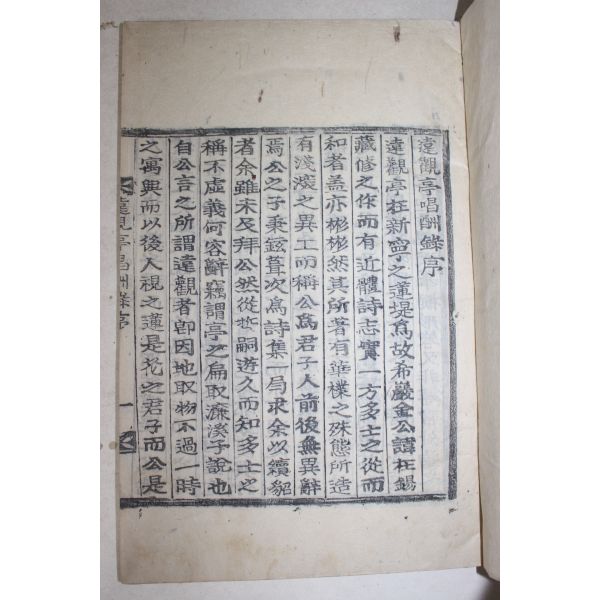 遠觀亭唱酬錄序
遠觀亭在新寧之蓮堤爲故希巖金公諱在錫
藏修之作而有近體詩志實一方多士之從而
和者蓋亦彬彬然其所著有華樸之殊態所造
有淺深之異工而稱公爲君子人前後無異辭
焉公之子秉鉉葺次爲詩集一局求余以續貂
者余雖未及拜公然從後嗣遊久而知多士之
稱不虛義何容辭竊謂亭之扁取濂溪子說也
自公言之所謂遠觀者卽因地取物不過一時
之寓興而以後人視之蓮是花之君子而公是
遠觀亭唱酬錄序 一